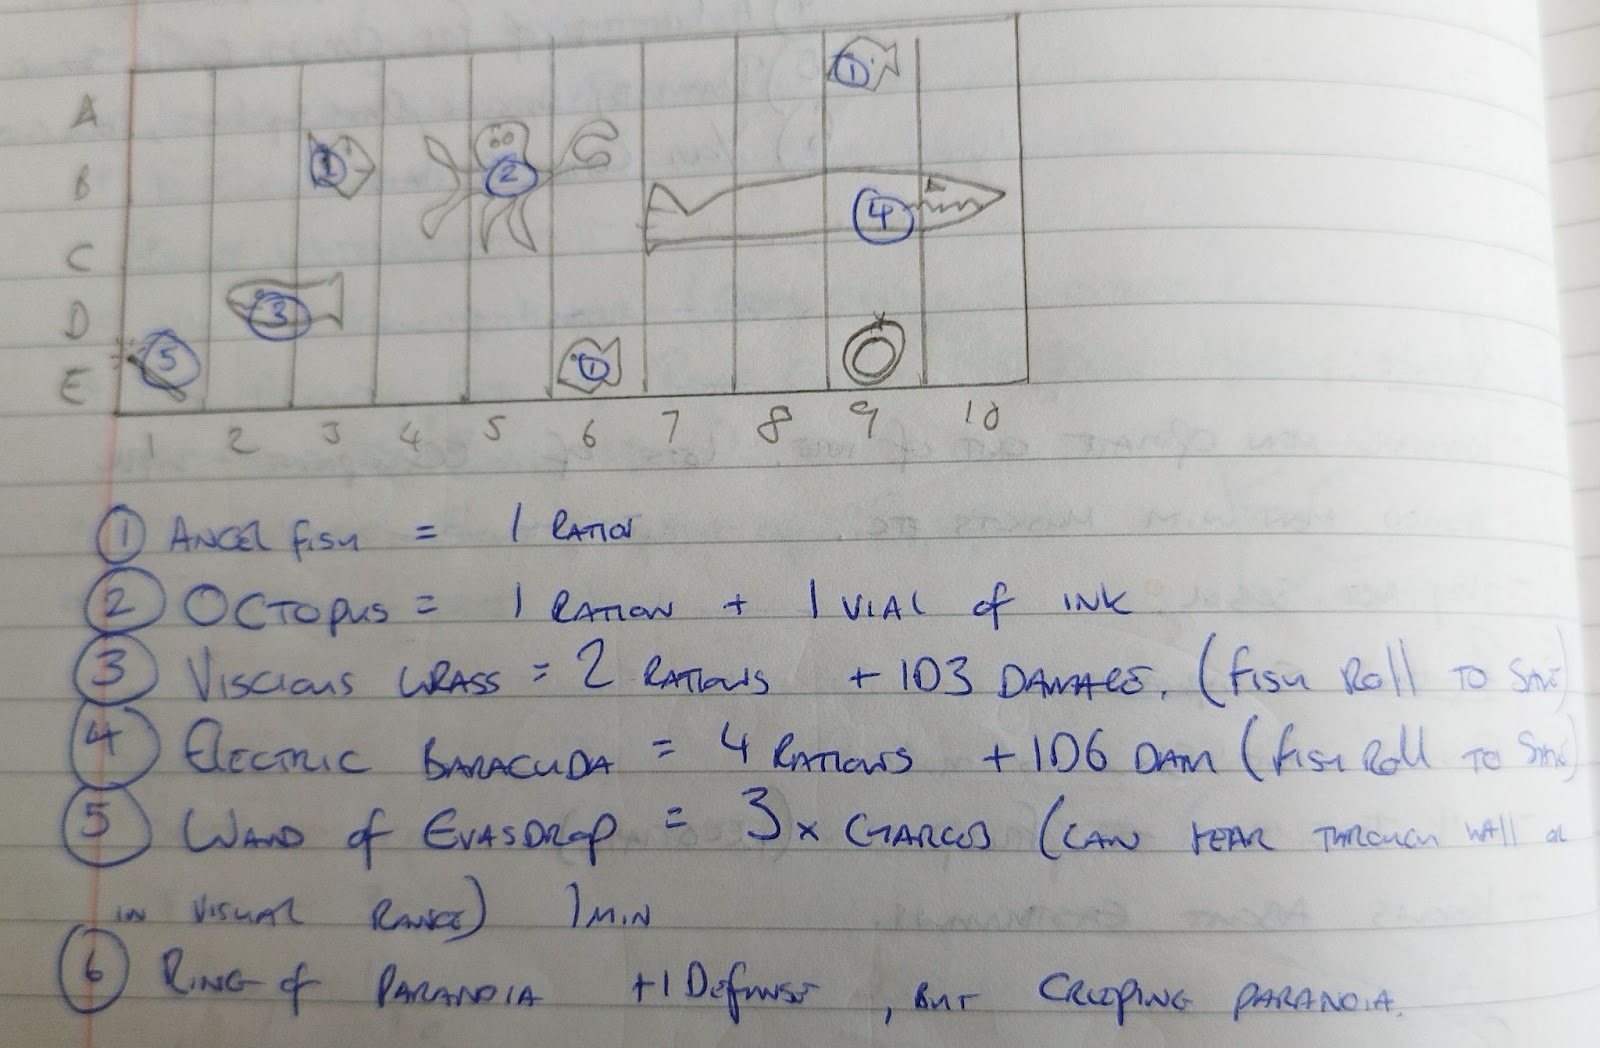 A
1
B
1
2
4
C
D
3
5
E
1
1 2 3 4 5 6 7 8 9 10
1 ANGEL FISH = 1 RATION
2 OCTOPUS = 1 RATION + 1 VIAL of INK
3 VISCIOUS WRASS = 2 RATIONS + 1D3 DAMAGE. (FISH ROLL TO SAVE)
4 ELECTRIC BARACUDA = 4 RATIONS + 1D6 DAM (FISH ROLL TO SAVE)
5 WAND of EVASDROP = 3 x CHARGES (CAN HEAR THROUGH WALL OR
IN VISUAL RANGE) 1 MIN
6 RING of PARANOIA +1 DEFENSE, BUT CREEPING PARANOIA.